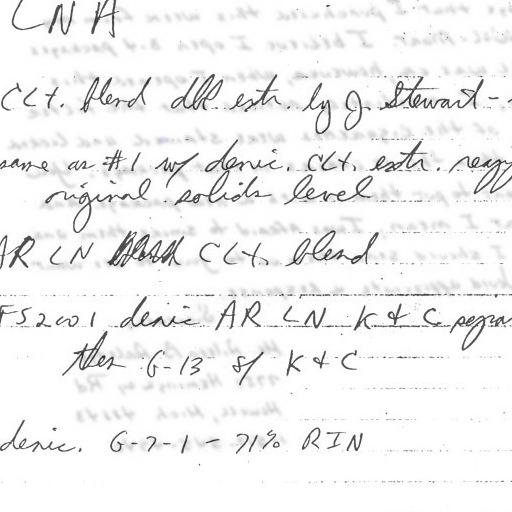 LNA
CLt. blend dbl extr. by J. Stewart -
same as #1 w/ denic. CLt. extr. reapp
original solids level
AR LN CLt. blend
FS2001 denic AR LN K & C
then G-13 s/ K & C
denic. G-7-1 - 71% RIN